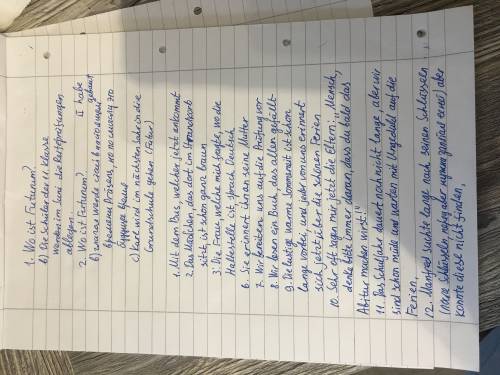 1. Wo ist Futurum?
b) Die Schüler der 11. Klasse
werden im Juni die Reifeprüfungen
ablegen.
2. Wo ist Futurum? II habe
b) глагол werde стоит в настоящем gebaut
времени Präsens, но по смыслу это
будущее время
c) Kurt wird im nächsten Jahr in die
Grundschule gehen (Futur)
1. Mit dem Bus, welcher jetzt ankommt
2. Das Mädchen, das dort im Strandkorb
sitzt, ist schon ganz braun
3. Die Frau, welche mich fragte, wo die
Haltestelle ist, sprach Deutsch
6. Sie erinnert ihnen seine Mutter
7. Wir bereiten uns auf die Prüfung vor
8. Wir lesen ein Buch, das allen gefällt
9. Die lustige warme Sommerzeit ist schon
lange vorbei, und jeder von uns erinnert
sich jetzt über die schönen Ferien
10. Sehr oft sagen mir jetzt die Eltern: „Mensch,
denke bitte immer daran, dass du bald das
Abitur machen wirst!"
11. Das Schuljahr dauert noch nicht lange, aber wir
sind schon müde und warten mit Ungeduld auf die
Ferien.
12. Manfred suchte lange nach seinen Schlüsseln
Schlüsseln, aber нужен aber
konnte diese nicht finden.